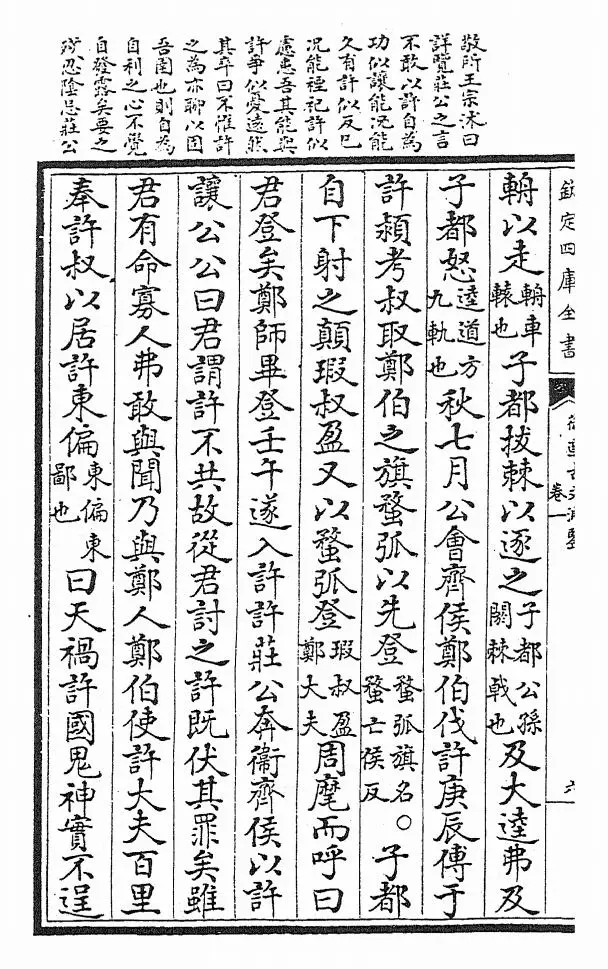 欽定四庫全書
卷一
六
敬所王宗沐曰
詳覽莊公之言
不敢以許自為
功似讓能況能
久有許似反巳
况能禋記許似
慮患吾其能與
許爭似愛遠然
其卒曰不惟許
之為亦聊以固
吾圉也則自為
自利之心不覺
自發露矣要之
殘忍陰忌莊公
輈以走輈車轅也子都拔棘以逐之子都公孫閼棘戟也及大逵弗及
子都怒逵道方九軌也秋七月公會齊侯鄭伯伐許庚辰傅于
許潁考叔取鄭伯之旗蝥弧以先登蝥弧旗名蝥亡侯反○子都
自下射之顛瑕叔盈又以蝥弧登瑕叔盈鄭大夫周麾而呼曰
君登矣鄭師畢登壬午遂入許許莊公奔衞齊侯以許
讓公公曰君謂許不共故從君討之許既伏其罪矣雖
君有命寡人弗敢與聞乃與鄭人鄭伯使許大夫百里
奉許叔以居許東偏東偏東鄙也曰天禍許國鬼神實不逞